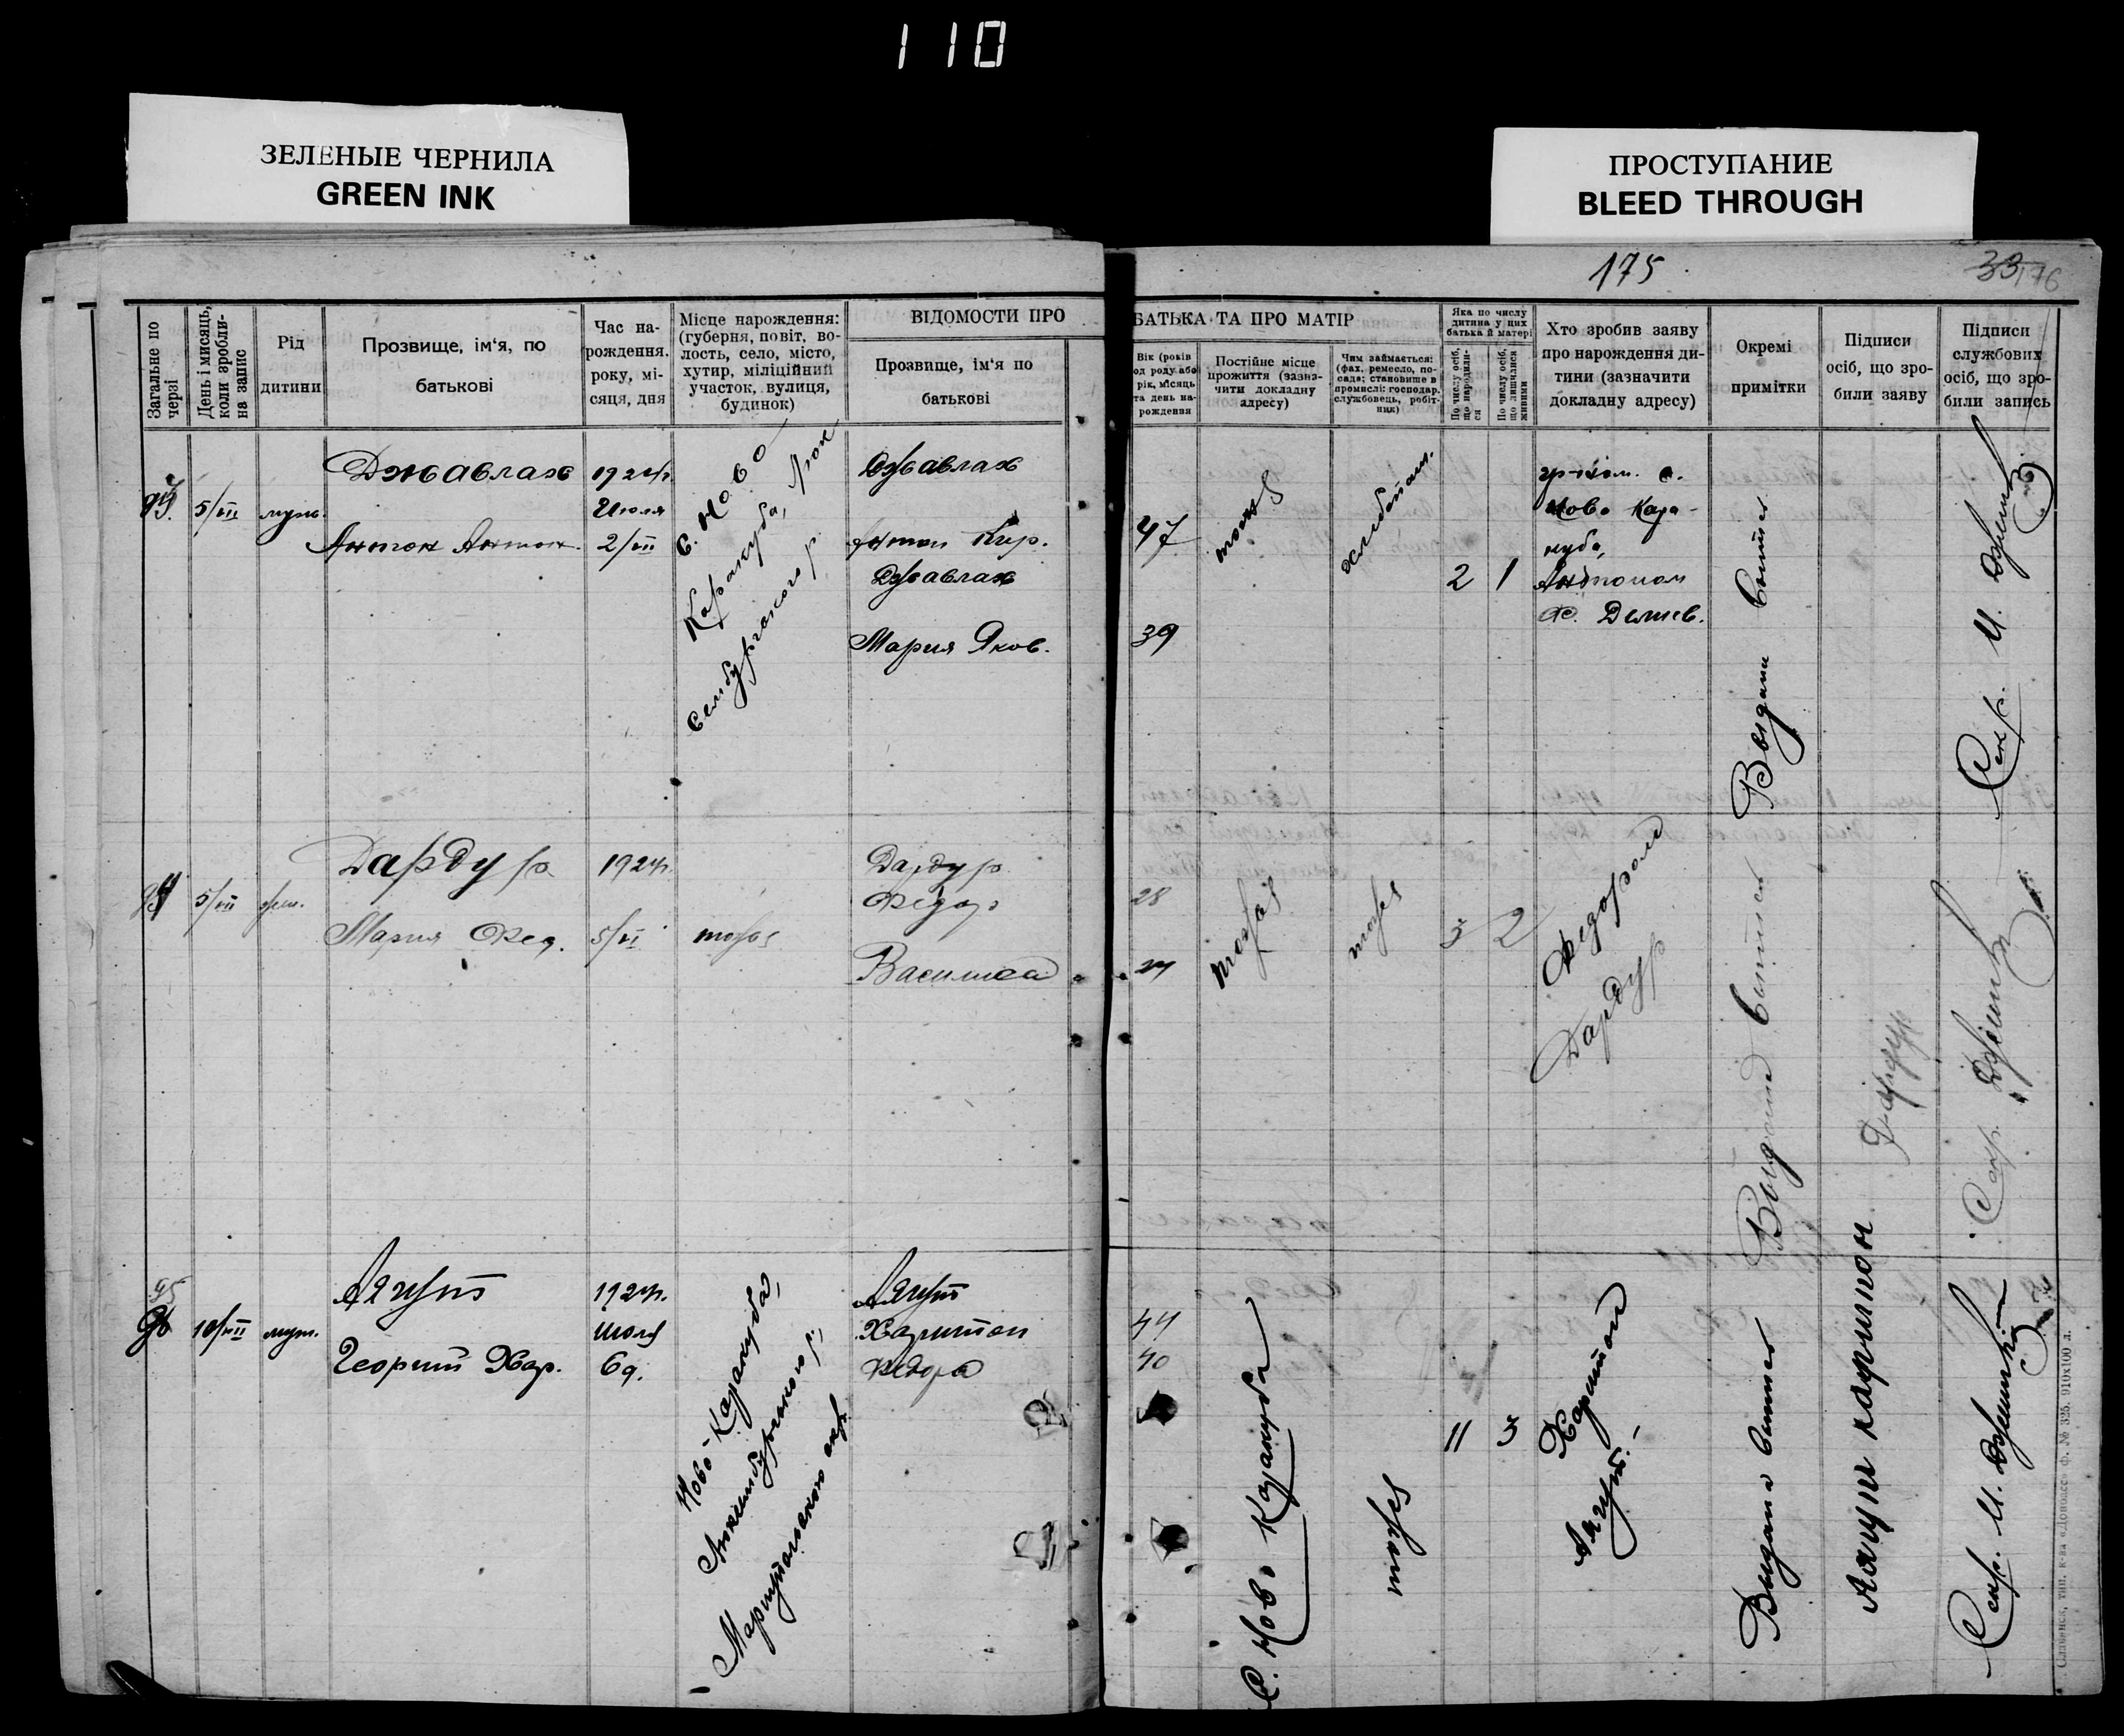 110
ЗЕЛЕНЫЕ ЧЕРНИЛА
GREEN INK
ПРОСТУПАНИЕ
BLEED THROUGH
175
33
176
Загальне по черзі
День і мисяць, коли зробли- на запис
Рід
дитини
Прозвище, ім‘я, по
батькові
Час на-
рождення.
року, мі-
сяця, дня
Місце нарождення:
(губерня, повіт, во-
лость, село, місто,
хутир, міліційний
участок, вулиця,
будинок)
ВІДОМОСТИ ПРО
Прозвище, ім‘я по
батькові
БАТЬКА ТА ПРО МАТІР
Вік (років
од роду або
рік, місяць
та день на-
рождення
Постійне місце
прожиття (зазна-
чити докладну
адресу)
Чим займається:
(фах, ремесло, по-
сада; становище в
промислі: господар,
службовець, робіт-
ник)
Яка по числу
дитина у цих
батька й матері
По числу осіб,
що народили-
ся
По числу осіб,
що лишилися
живими
Хто зробив заяву
про нарождення ди-
тини (зазначити
докладну адресу)
Окремі
примітки
Підписи
осіб, що зро-
били заяву
Підписи
службових
осіб, що зро-
били запись
5/VII
муж.
Джавлах
Антон Антон.
1924р.
Июля
2/VII
с. Ново
Каракуба,
Джавлах
Антон Кир.
Джавлах
Мария Яков.
47
39
тоже
хлебопаш.
2
1
гр-ном. с.
Ново Кара-
куба,
Антоном
Выдана выпись
Секр. И.
5/VII
жен.
Дардур
Мария Фед.
1924р.
5/VI
тоже
Дардур
Федор
Василиса
28
27
тоже
тоже
3
2
Федором
Дардур
Выдана выпись
Дардур
Секр.
95
10/VII
муж.
Аягуп
Георгий Хар.
1924р.
июля
6д.
Ново-Каракуба,
Мариупольского окр.
Аягуп
Харитон
Федора
44
40
С. Ново Каракуба
тоже
11
5
Харитон
Аягуп.-
Выдана выпись
Аягуп харитон
Секр. И.
Славянск, тип. к-ва «Донполес» ф. № 325. 910х100 л.